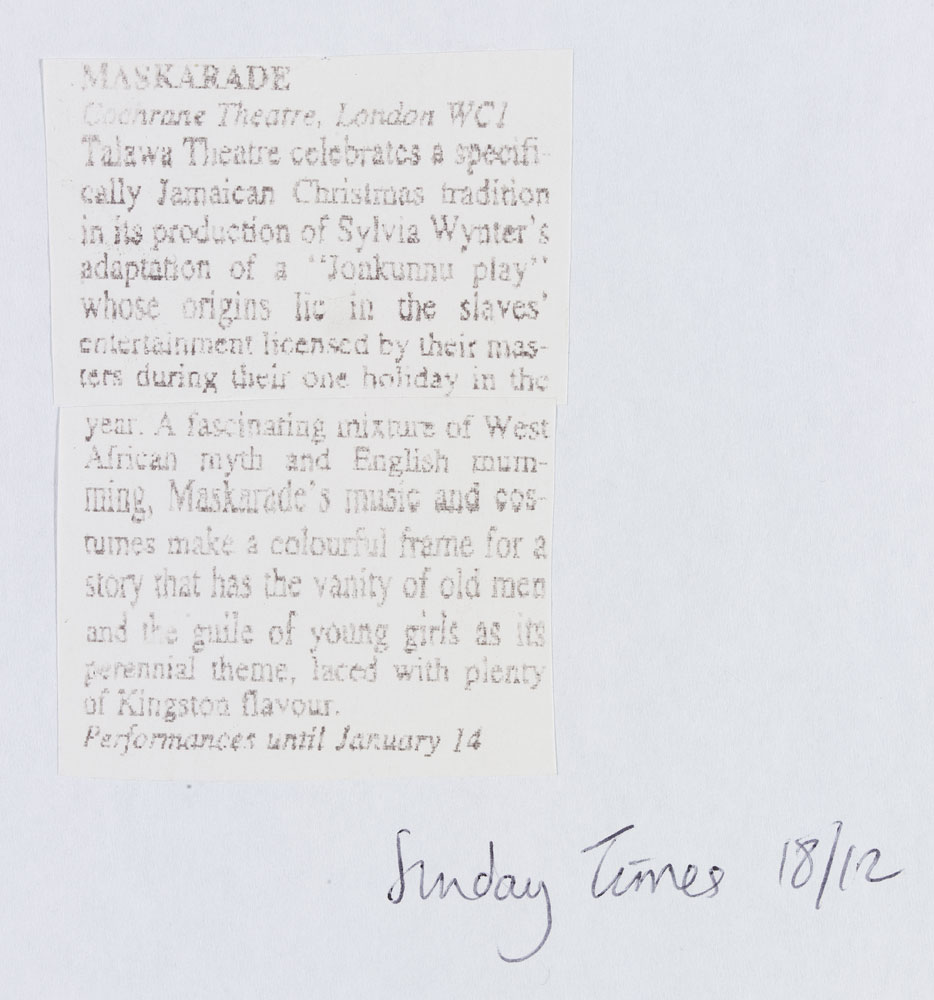 MASKARADE
Cochrane Theatre, London WC1
Talawa Theatre celebrates a specifi-
cally Jamaican Christmas tradition
in its production of Sylvia Wynter's
adaptation of a "Jonkunnu play"
whose origins lie in the slaves'
entertainment licensed by their mas-
ters during their one holiday in the
year. A fascinating mixture of West
African myth and English mum-
ming, Maskarade's music and cos-
tumes make a colourful frame for a
story that has the vanity of old men
and the guile of young girls as its
perennial theme, laced with plenty
of Kingston flavour.
Performances until January 14
Sunday Times 18/12